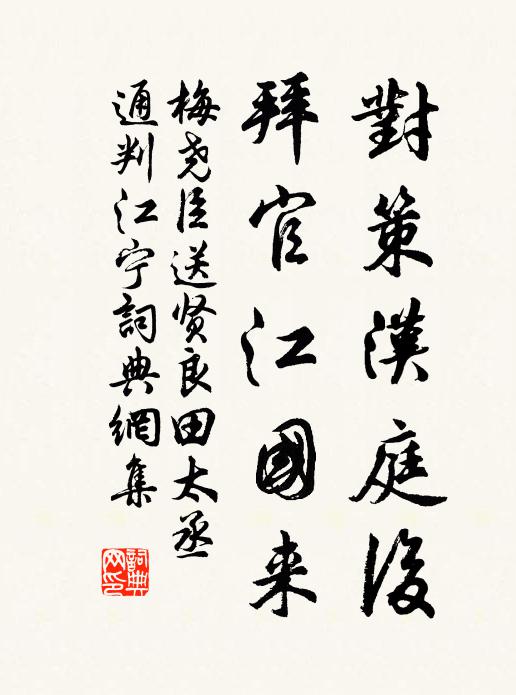 對策漢庭後
拜官江國来
梅尧臣送贤良田太丞
通判江宁詞典網集
詞典网印